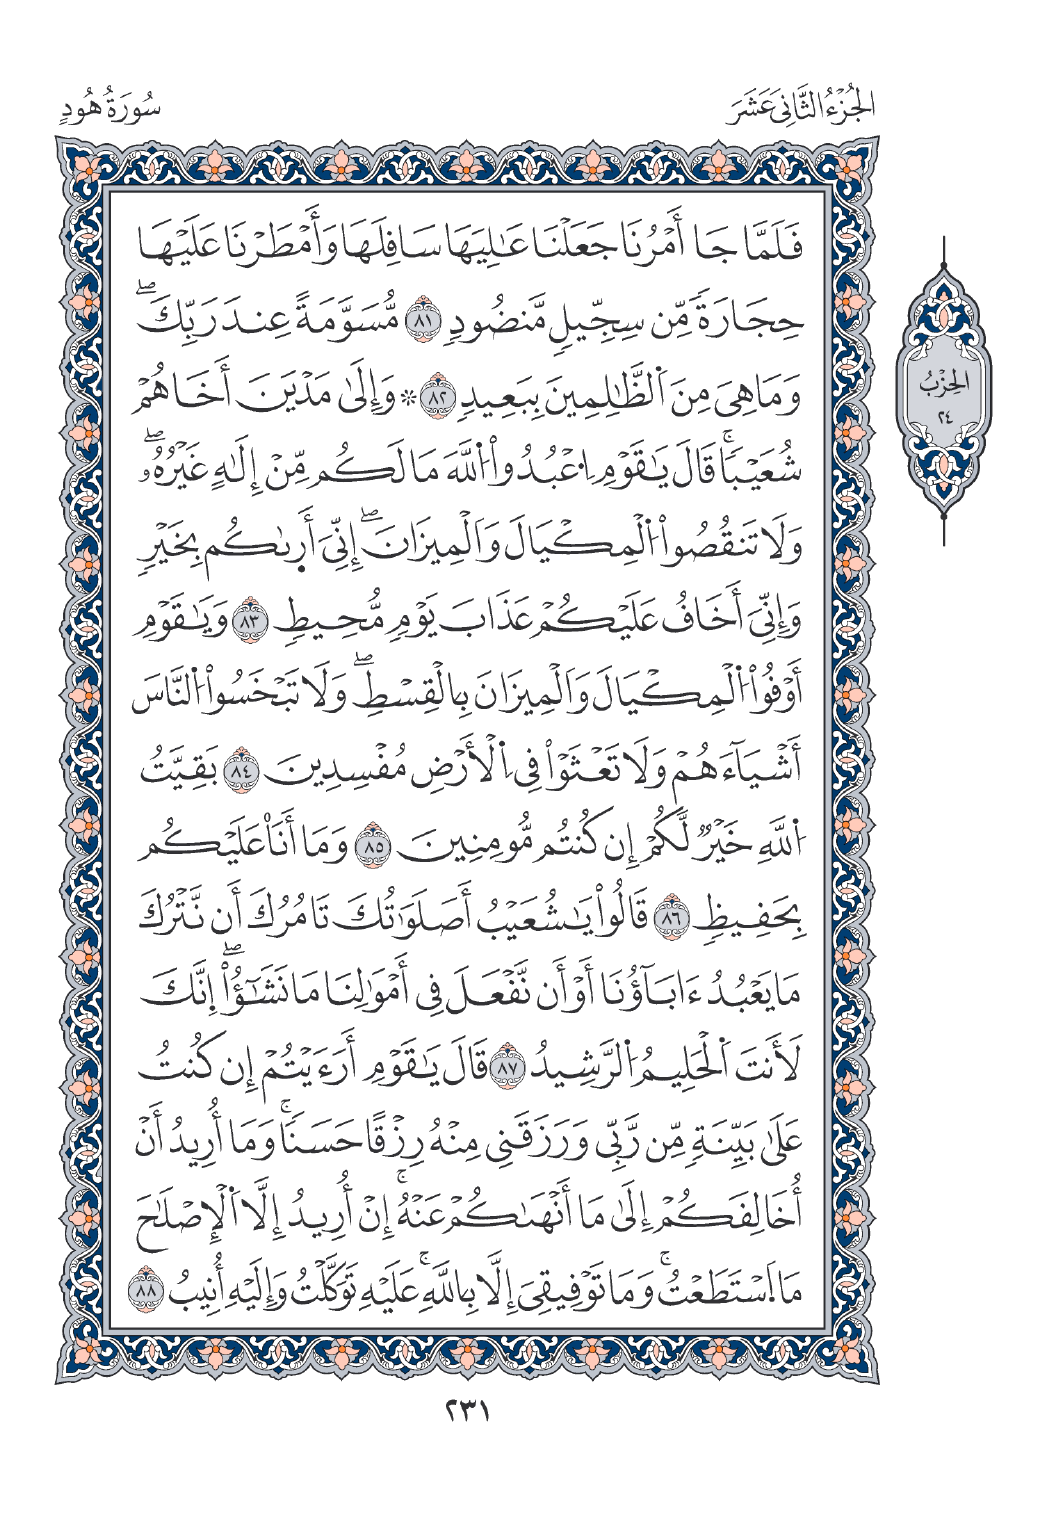 الجُزْءُ الثَّانِي عَشَرَ
سُورَةُ هُودٍ
فَلَمَّا جَا أَمْرُنَا جَعَلْنَا عَٰلِيَهَا سَافِلَهَا وَأَمْطَرْنَا عَلَيْهَا
حِجَارَةً مِّن سِجِّيلٍ مَّنضُودٍ ٨١ مُّسَوَّمَةً عِندَ رَبِّكَۖ
وَمَا هِيَ مِنَ اَ۬لظَّٰلِمِينَ بِبَعِيدٍ ٨٢ ۞ وَإِلَىٰ مَدْيَنَ أَخَاهُمْ
شُعَيْبٗاۚ قَالَ يَٰقَوْمِ اِ۟عْبُدُواْ اُ۬للَّهَ مَا لَكُم مِّنْ إِلَٰهٍ غَيْرُهُۥۖ
وَلَا تَنقُصُواْ اُ۬لْمِكْيَالَ وَالْمِيزَانَۖ إِنِّيَ أَر۪ىٰكُم بِخَيْرٍ
وَإِنِّيَ أَخَافُ عَلَيْكُمْ عَذَابَ يَوْمٍ مُّحِيطٍ ٨٣ وَيَٰقَوْمِ
أَوْفُواْ اُ۬لْمِكْيَالَ وَالْمِيزَانَ بِالْقِسْطِۖ وَلَا تَبْخَسُواْ اُ۬لنَّاسَ
أَشْيَآءَهُمْ وَلَا تَعْثَوْاْ فِي اِ۬لْأَرْضِ مُفْسِدِينَ ٨٤ بَقِيَّتُ
اُ۬للَّهِ خَيْرٌ لَّكُمْ إِن كُنتُم مُّومِنِينَ ٨٥ وَمَا أَنَا۠ عَلَيْكُم
بِحَفِيظٍ ٨٦ قَالُواْ يَٰشُعَيْبُ أَصَلَوَٰتُكَ تَامُرُكَ أَن نَّتْرُكَ
مَا يَعْبُدُ ءَابَآؤُنَا أَوْ أَن نَّفْعَلَ فِي أَمْوَٰلِنَا مَا نَشَٰٓؤُاْۖ إِنَّكَ
لَأَنتَ اَ۬لْحَلِيمُ اُ۬لرَّشِيدُ ٨٧ قَالَ يَٰقَوْمِ أَرَءَيْتُمْ إِن كُنتُ
عَلَىٰ بَيِّنَةٍ مِّن رَّبِّي وَرَزَقَنِي مِنْهُ رِزْقًا حَسَنٗاۚ وَمَا أُرِيدُ أَنْ
أُخَالِفَكُمْ إِلَىٰ مَا أَنْهَىٰكُمْ عَنْهُۚ إِنْ أُرِيدُ إِلَّا اَ۬لْإِصْلَٰحَ
مَا اَ۪سْتَطَعْتُۚ وَمَا تَوْفِيقِيَ إِلَّا بِاللَّهِۚ عَلَيْهِ تَوَكَّلْتُ وَإِلَيْهِ أُنِيبُ ٨٨
الحِزْبُ
٢٤
٢٣١